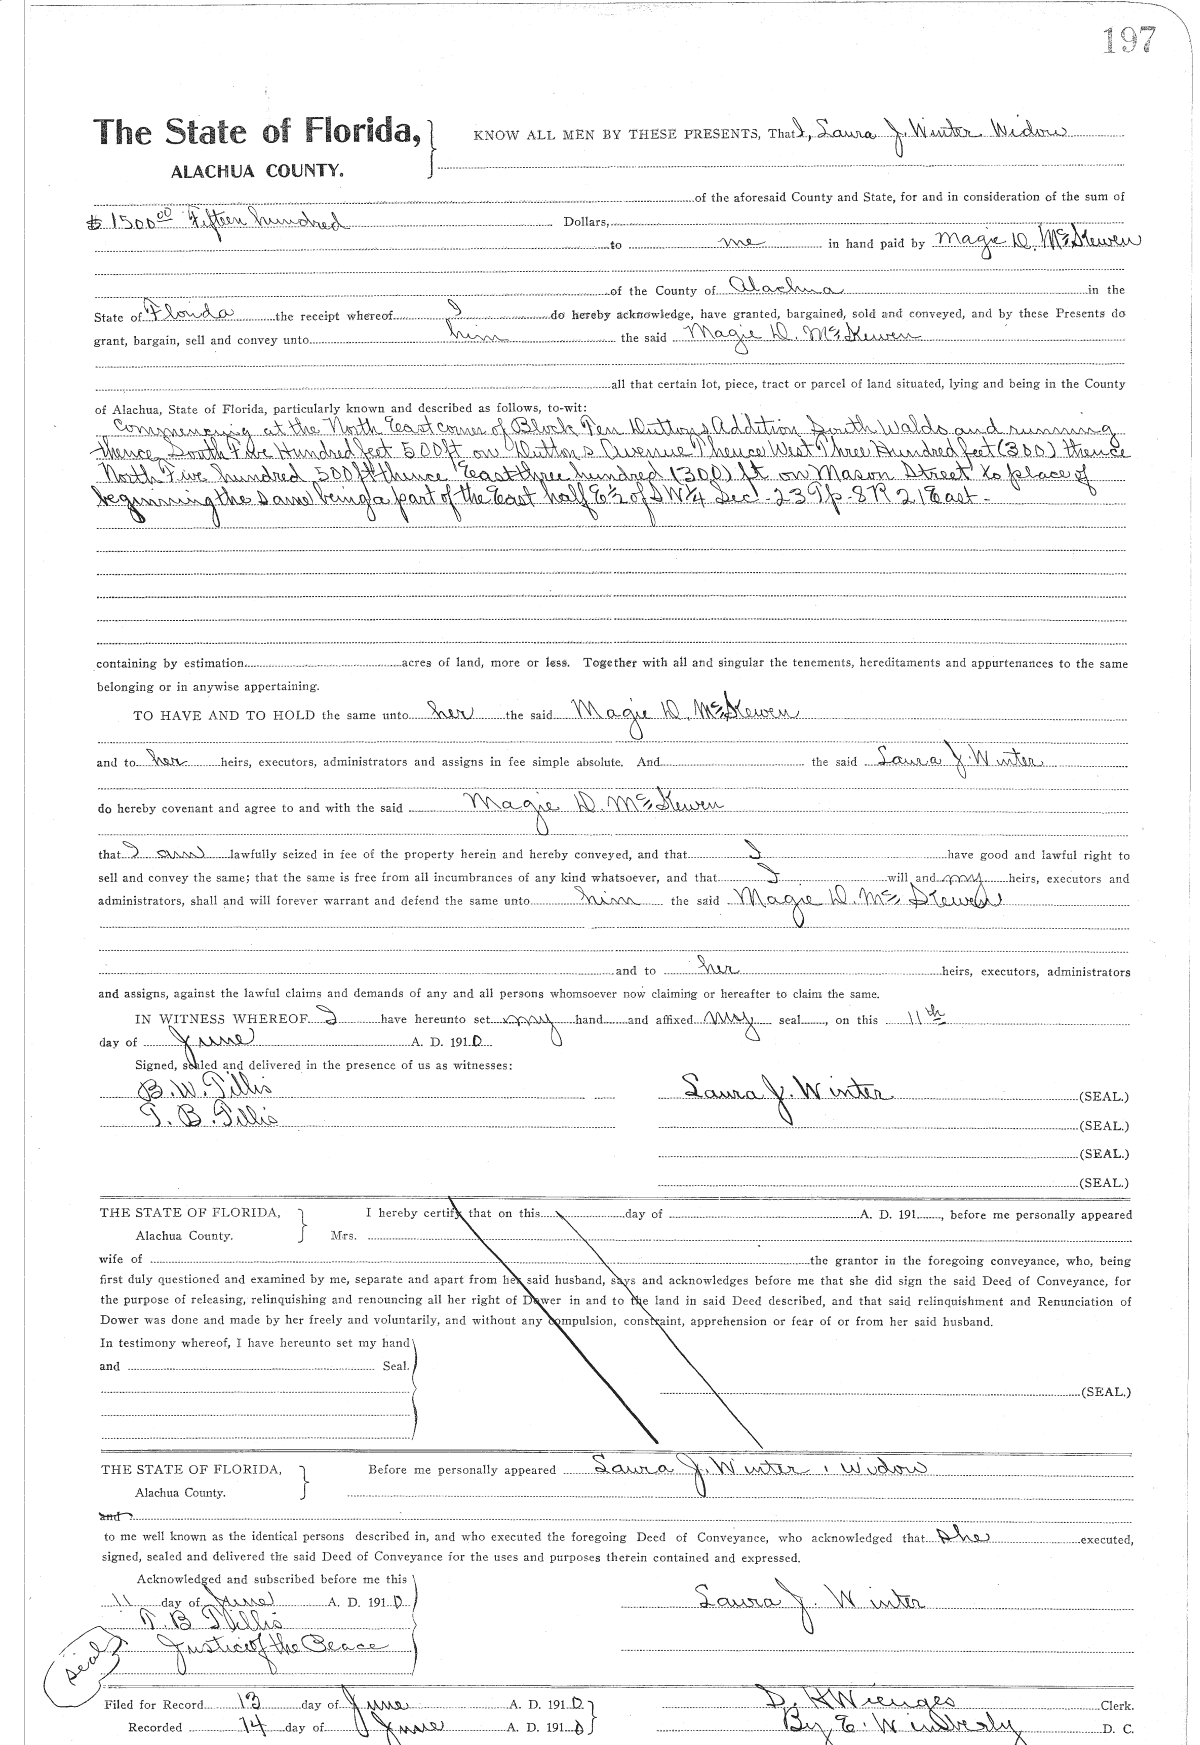 197
The State of Florida,
ALACHUA COUNTY.
KNOW ALL MEN BY THESE PRESENTS, That I, Laura J. Winter Widow
of the aforesaid County and State, for and in consideration of the sum of
$1500.00 Fifteen hundred Dollars,
to me in hand paid by Magie D. McSkewen
of the County of Alachua in the
State of Florida the receipt whereof I do hereby acknowledge, have granted, bargained, sold and conveyed, and by these Presents do
grant, bargain, sell and convey unto him the said Magie D. McSkewen
all that certain lot, piece, tract or parcel of land situated, lying and being in the County
of Alachua, State of Florida, particularly known and described as follows, to-wit:
Commencing at the North East corner of Block Ten Duttons Addition South Waldo and running
thence South Five Hundred feet 500ft on Duttons Avenue Thence West Three Hundred feet (300) thence
North Five hundred 500ft thence East three hundred (300) ft on Mason Street to place of
beginning the same being a part of the East half E½ of SW¼ Sec - 23 Tp - 8 R 21 East -
containing by estimation acres of land, more or less. Together with all and singular the tenements, hereditaments and appurtenances to the same
belonging or in anywise appertaining.
TO HAVE AND TO HOLD the same unto her the said Magie D. McSkewen
and to her heirs, executors, administrators and assigns in fee simple absolute. And the said Laura J. Winter
do hereby covenant and agree to and with the said Magie D. McSkewen
that I am lawfully seized in fee of the property herein and hereby conveyed, and that I have good and lawful right to
sell and convey the same; that the same is free from all incumbrances of any kind whatsoever, and that I will and my heirs, executors and
administrators, shall and will forever warrant and defend the same unto him the said Magie D. McSkewen
and to her heirs, executors, administrators
and assigns, against the lawful claims and demands of any and all persons whomsoever now claiming or hereafter to claim the same.
IN WITNESS WHEREOF I have hereunto set my hand and affixed my seal, on this 11th
day of June A. D. 1910
Signed, sealed and delivered in the presence of us as witnesses:
B. W. Tillis
T. B. Tillis
Laura J. Winter (SEAL.)
(SEAL.)
(SEAL.)
(SEAL.)
THE STATE OF FLORIDA,
Alachua County.
I hereby certify that on this day of A. D. 191, before me personally appeared
Mrs.
wife of the grantor in the foregoing conveyance, who, being
first duly questioned and examined by me, separate and apart from her said husband, says and acknowledges before me that she did sign the said Deed of Conveyance, for
the purpose of releasing, relinquishing and renouncing all her right of Dower in and to the land in said Deed described, and that said relinquishment and Renunciation of
Dower was done and made by her freely and voluntarily, and without any compulsion, constraint, apprehension or fear of or from her said husband.
In testimony whereof, I have hereunto set my hand
and Seal.
(SEAL.)
THE STATE OF FLORIDA,
Alachua County.
Before me personally appeared Laura J. Winter, Widow
and
to me well known as the identical persons described in, and who executed the foregoing Deed of Conveyance, who acknowledged that she executed,
signed, sealed and delivered the said Deed of Conveyance for the uses and purposes therein contained and expressed.
Acknowledged and subscribed before me this
11 day of June A. D. 1910
T. B. Tillis
Justice of the Peace
seal
Laura J. Winter
Filed for Record 13 day of June A. D. 1910
Recorded 14 day of June A. D. 1910
D. K Wienges Clerk.
By E. Wimberly D. C.